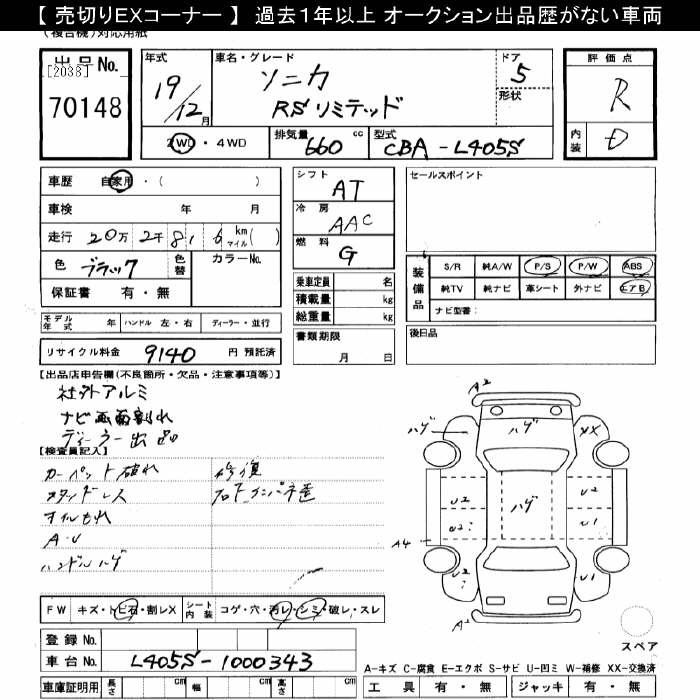 【 売切りEXコーナー 】 過去1年以上 オークション出品歴がない車両
(複合機)対応用紙
出品No.
[2038]
70148
年式
19/12月
車名・グレード
ソニカ
RSリミテッド
ドア
5
形状
評価点
R
内装
D
2WD・4WD
排気量 660 cc
型式 CBA-L405S
車歴 自家用・( )
車検 年 月
走行 20万 2千 8 1 6 km マイル( )
色 ブラック 色替 カラーNo.
保証書 有・無
モデル年式 年 ハンドル 左・右 ディーラー・並行
リサイクル料金 9140 円 預託済
シフト AT
冷房 AAC
燃料 G
乗車定員 名
積載量 kg
総重量 kg
書類期限
月 日
セールスポイント
装備品
S/R 純A/W P/S P/W ABS
純TV 純ナビ 革シート 外ナビ エアB
ナビ型番:
後日品
【出品店申告欄(不良箇所・欠品・注意事項等)】
社外アルミ
ナビ画面割れ
ディーラー出品
【検査員記入】
カーペット破れ
スタッドレス
オイルもれ
A・U
ハンドルハゲ
修復
A2
ハゲ
ハゲ
XX
U2
U2
ハゲ
U2
U1
A4
U2
U1
A2
FW キズ・トビ石・割レX シート内装 コゲ・穴・汚レ・シミ・破レ・スレ
登録 No.
車台 No. L405S-1000343
車庫証明用 長さ cm 幅 cm 高さ cm
スペア
A-キズ C-腐食 E-エクボ S-サビ U-凹ミ W-補修 XX-交換済
工具 有・無 ジャッキ 有・無